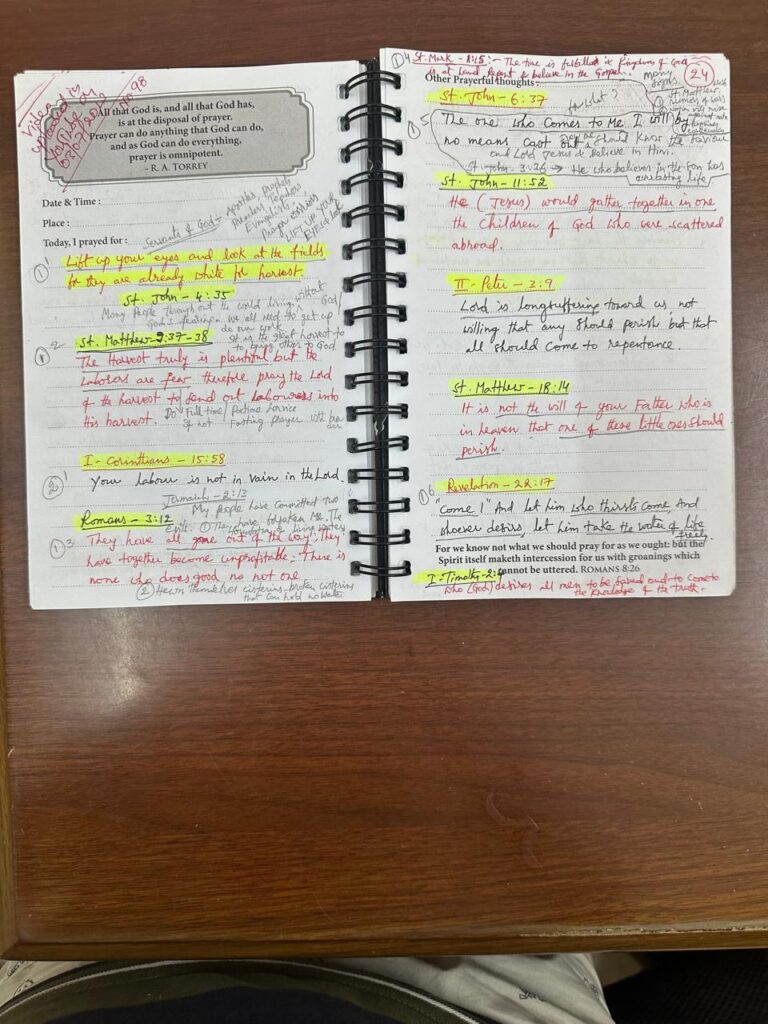 Video is
uploaded in
03/07/2023
98
All that God is, and all that God has,
is at the disposal of prayer.
Prayer can do anything that God can do,
and as God can do everything,
prayer is omnipotent.
- R. A. TORREY
Date & Time :
Place :
Today, I prayed for :
Servants of God - Apostles, Prophets
Pastors Teachers
Evangelists
Prayer warriors
Lift up your
eyes & look
① 1 Lift up your eyes and look at the fields
for they are already white for harvest.
St. John - 4:35
Many People throughout the world living without
God's fearing. we all need to get up God/
do our work.
It is the great harvest to
to bring other to God
① 2 St. Matthew - 9:37-38
The Harvest truly is plentiful but the
Laborers are few therefore pray the Lord
of the harvest to send out Labourers into
His harvest.
Do Full time / Partime Service
If not - Fasting prayer with
I - Corinthians - 15:58
② 1 Your labour is not in vain in the Lord.
Jeremiah - 2:13
My people have committed two
Evils: ① They have forsaken Me. The
fountain of living waters
Romans - 3:12
① 3 They have all gone out of the way; They
have together become unprofitable; There is
none who does good, no not one.
② Hewn themselves cisterns - broken cisterns
that can hold no water
① 4 St. Mark - 1:15 :- The time is fulfilled & Kingdom of God
is at hand. Repent & believe in the Gospel.
Other Prayerful thoughts:
many
signs.
24
St. Matthew
rumors of wars
St. John - 6:37
for what?
① 5 The one who comes to Me I will by
no means cast out
should know the saviour
and Lord Jesus & believe in Him.
St. John - 3:36 → He who believes in the Son has
everlasting life
St. John - 11:52
He (Jesus) would gather together in one
the Children of God who were scattered
abroad.
II - Peter - 3:9
Lord is longsuffering toward us, not
willing that any should perish but that
all should come to repentance.
St. Matthew - 18:14
It is not the will of your Father who is
in heaven that one of these little ones should
perish.
① 6 Revelation - 22:17
"Come!" And let him who thirsts come. And
whoever desires, let him take the water of life
freely
For we know not what we should pray for as we ought: but the
Spirit itself maketh intercession for us with groanings which
cannot be uttered. ROMANS 8:26
I - Timothy - 2:4
Who (God) desires all men to be saved and to come to
the knowledge of the truth.